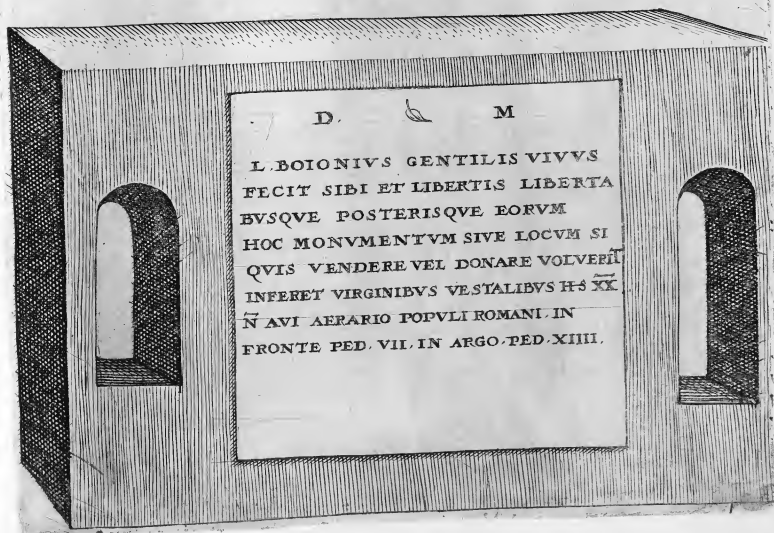 D. M
L. BOIONIVS GENTILIS VIVVS
FECIT SIBI ET LIBERTIS LIBERTA
BVSQVE POSTERISQVE EORVM
HOC MONVMENTVM SIVE LOCVM SI
QVIS VENDERE VEL DONARE VOLVERIT
INFERET VIRGINIBVS VESTALIBVS HS X̅X̅
N̅ AVI AERARIO POPVLI ROMANI. IN
FRONTE PED. VII. IN ARGO. PED. XIIII.